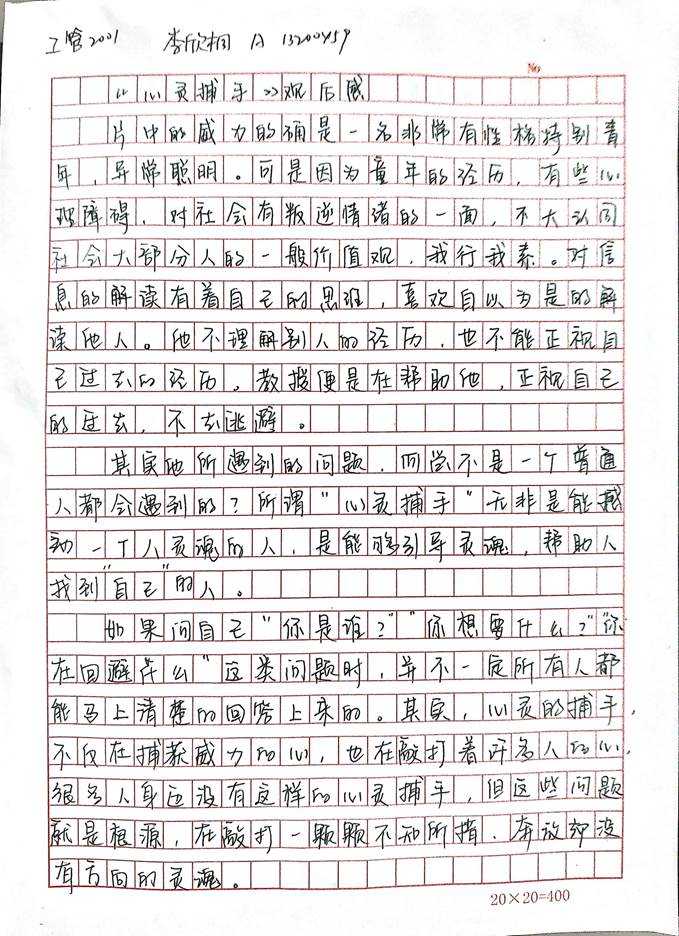 工管2001 李欣桐 A 13200459
No
《心灵捕手》观后感
片中的威力的确是一名非常有性格特别青
年，异常聪明。可是因为童年的经历，有些心
理障碍，对社会有叛逆情绪的一面，不大认同
社会大部分人的一般价值观，我行我素。对信
息的解读有着自己的思维，喜欢自以为是的解
读他人。他不理解别人的经历，也不能正视自
己过去的经历，教授便是在帮助他，正视自己
的过去，不去逃避。
其实他所遇到的问题，何尝不是一个普通
人都会遇到的？所谓"心灵捕手"无非是能撼
动一个人灵魂的人，是能够引导灵魂，帮助人
找到"自己"的人。
如果问自己"你是谁？""你想要什么？""你
在回避什么"这类问题时，并不一定所有人都
能马上清楚的回答上来的。其实，心灵的捕手，
不仅在捕获威力的心，也在敲打着许多人的心，
很多人身边没有这样的心灵捕手，但这些问题
就是根源，在敲打一颗颗不知所措、奔放却没
有方向的灵魂。
20×20=400